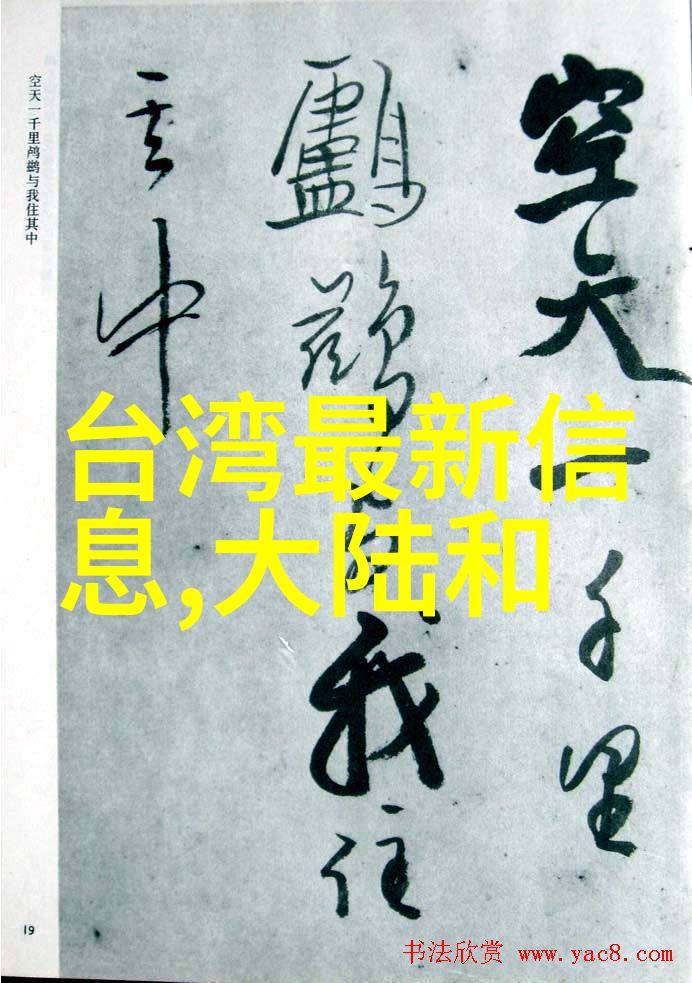 空天一千里
鸕鷀與我住
其中
空天一千里鸬鹚与我住其中
台湾最新信
息,大陆和
19
书法欣赏 www.yac8.com